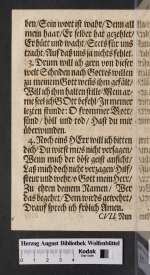 ben/ Sein wort ist wahr/ Denn all
mein haar/ Er selber hat gezehlet/
Er hüt und wacht/ Stets für uns
tracht/ Auf daß uns ja nichts fehlet.
3. Drum will ich gern von dieser
welt Scheiden nach Gottes willen
zu meinem Gott wens ihm gefält/
Will ich ihm halten stille/ Mein ar-
me seel ich GOtt befehl/ Zu meiner
letzten stunde: O frommer Gott/
sünd/ höll und tod/ Hast du mir
überwunden.
4. Noch eins HErr will ich bitten
dich/ Du wirst mirs nicht versagen/
Wenn mich der böse geist anficht/
Laß mich doch nicht verzagen/ Hilf/
steur und wehr/ o Gott mein Herr/
Zu ehren deinem Namen/ Wer
das begehrt/ Dem wirds gewehrt/
Drauf sprech ich frölich Amen.
CVII. Nun
Herzog August Bibliothek Wolfenbüttel
Kodak